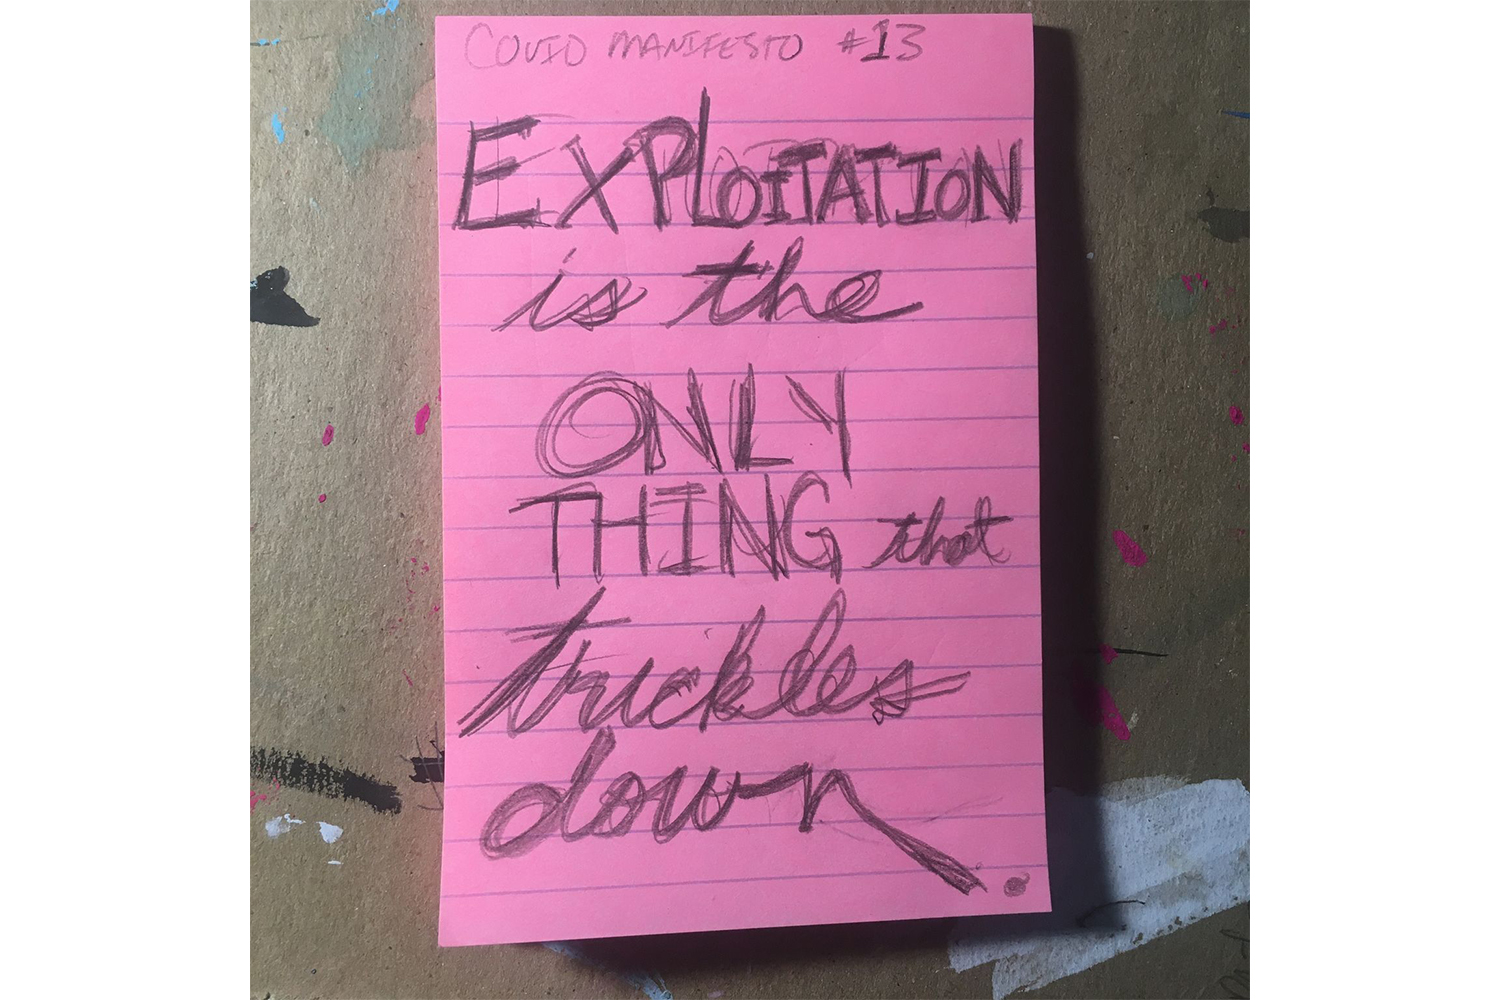 COVID MANIFESTO #13
EXPLOITATION
is the
ONLY
THING that
trickles
down.